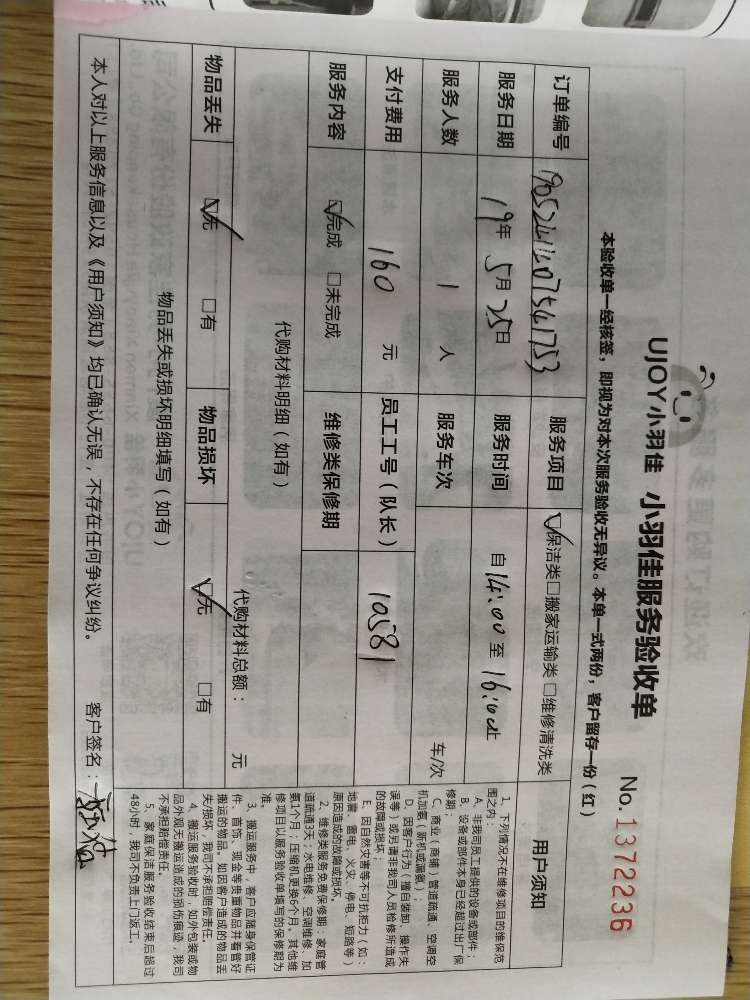 UJOY小羽佳 小羽佳服务验收单
No.1372236
本验收单一经核签，即视为对本次服务验收无异议。本单一式两份，客户留存一份（红）
订单编号 服务项目 ☑保洁类□搬家运输类□维修清洗类
服务日期 19年 5月25日 服务时间 自14:00至16:00止
服务人数 1 人 服务车次 车/次
支付费用 160 元 员工工号（队长） 10581
服务内容 ☑完成 □未完成 维修类保修期
代购材料明细（如有）
代购材料总额： 元
物品丢失 ☑无 □有 物品损坏 ☑无 □有
物品丢失或损坏明细填写（如有）
本人对以上服务信息以及《用户须知》均已确认无误，不存在任何争议纠纷。 客户签名：
用户须知
1、下列情况不在维修项目的维保范
围之内：
A、非我司员工提供的设备或部件；
B、设备或部件本身已经超过出厂保
修期；
C、商业（商铺）管道疏通、空调空
机加氨（新机或漏氨）；
D、因客户行为（擅自装卸、操作失
误等）或另请非我司人员检修所造成
的故障或损坏
E、因自然灾害等不可抗拒力（如：
地震、雷电、火灾、停电、短路等）
原因造成的故障或损坏。
2、维修类服务免费保修期：家庭管
道疏通3天；水电维修、空调维修、加
氨1个月；压缩机更换6个月。其他维
修项目以服务验收单填写的保修期为
准。
3、搬运服务中，客户应随身保管证
件、首饰、现金等贵重物品并看管好
搬运的物品。如因客户造成的物品丢
失/损坏，我司不承担赔偿责任。
4、搬运服务验收时，如外包装或物
品外观无搬运造成的损伤痕迹，我司
不承担赔偿责任。
5、家庭保洁服务验收结束后超过
48小时，我司不负责上门返工。